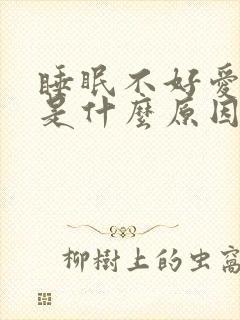 睡眠不好愛
是什麼原因
柳樹上的虫窩